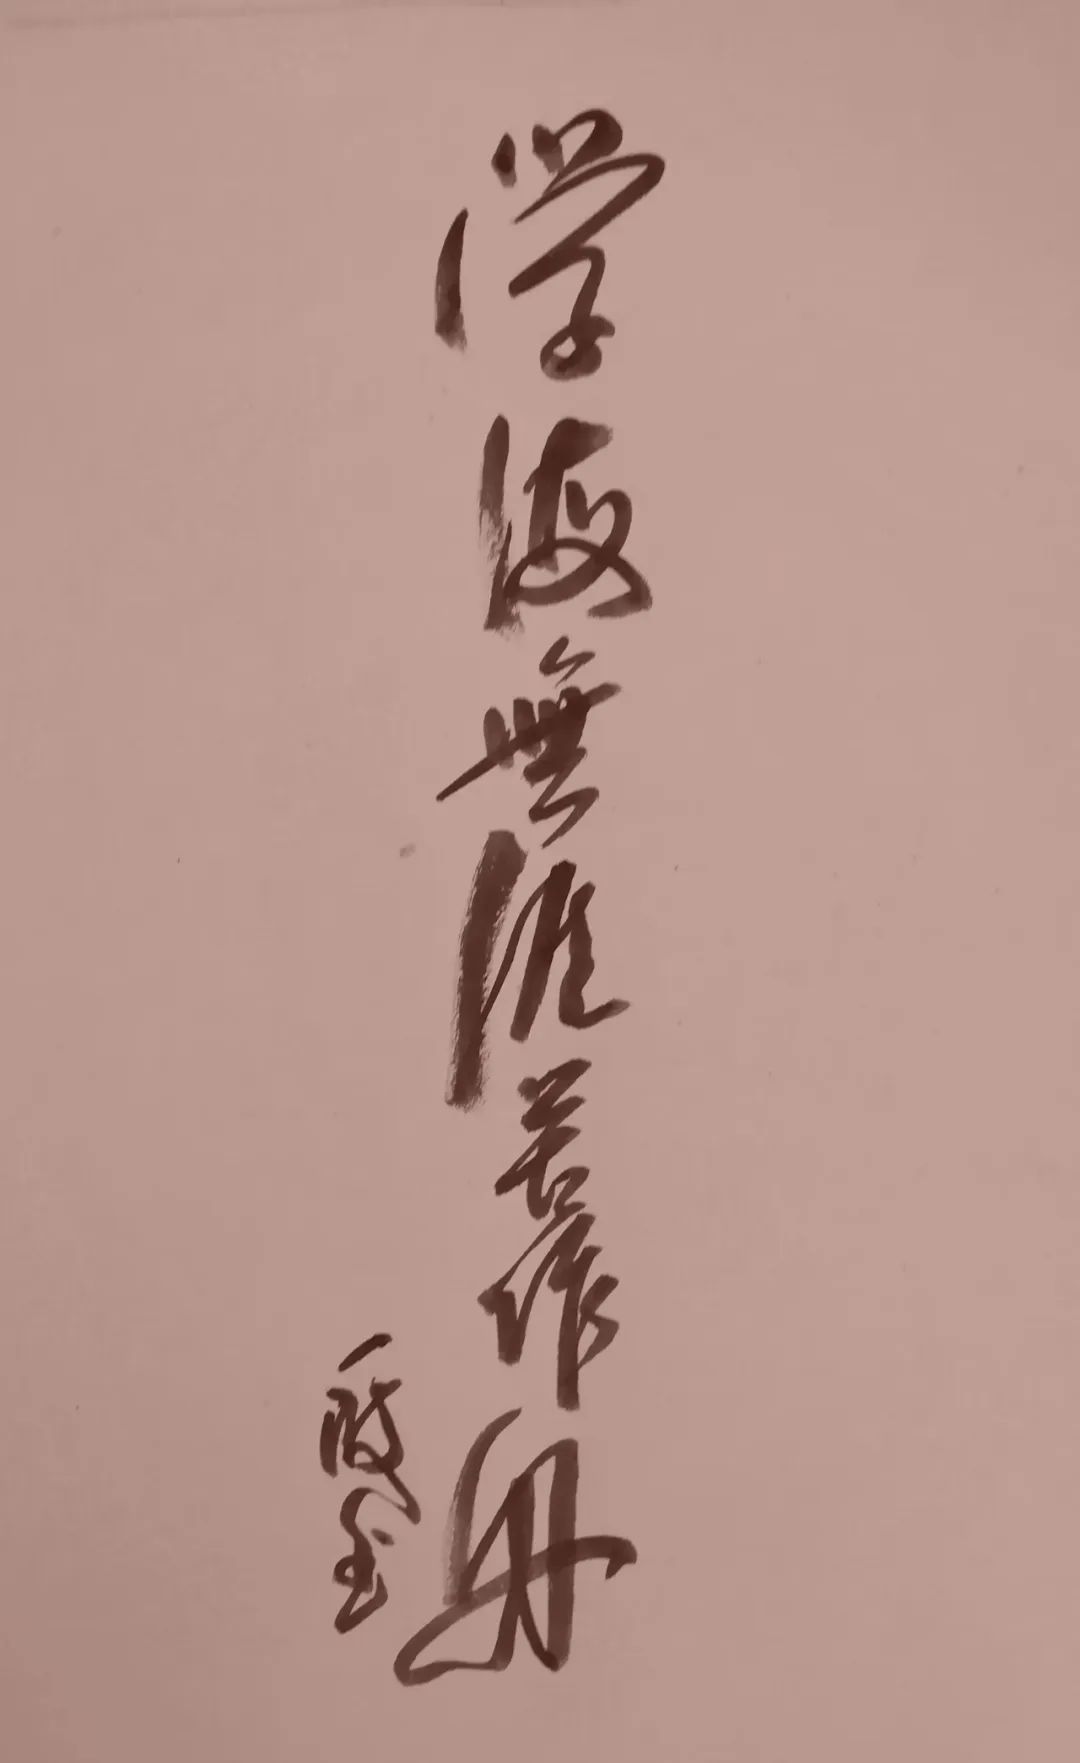 学海無涯苦作舟